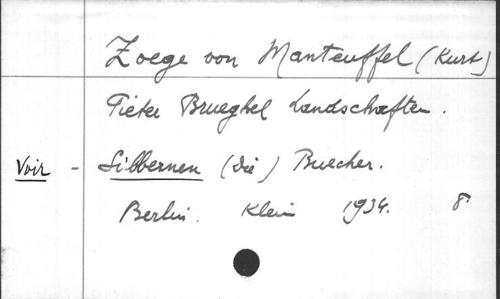 Zoege von Manteuffel (Kurt)
Pieter Brueghel Landschaften.
Voir - Silbernen (die) Buecher.
Berlin. Klein 1934. 8°